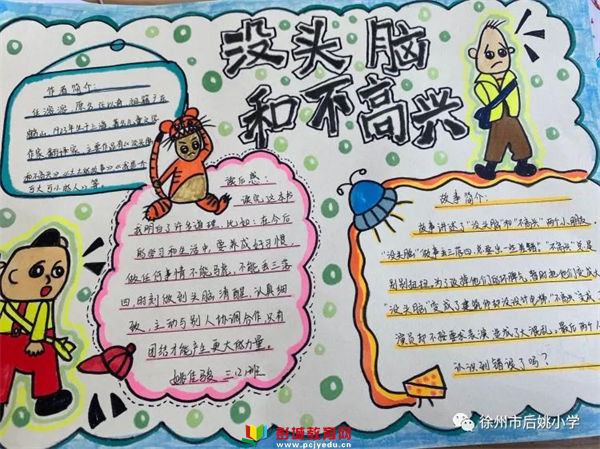 没头脑
和不高兴
作者简介：
任溶溶，原名
1923年生于上海，著名儿童文学
作家、翻译家，主要作品有《没头脑
和不高兴》
读后感：
读完这本书
我明白了许多道理，比如：在今后
的学习和生活中，要养成好习惯，
做任何事情不能马虎，不能丢三落
四，时刻做到头脑清醒，认真细
致，主动与别人协调合作，只有
团结才能产生更大的力量。
三(2)班
故事简介：
故事讲述了"没头脑"和"不高兴"两个小朋友，
"没头脑"做事丢三落四，总是
"不高兴"总是
别别扭扭，为了改掉他们的坏脾气，暂时把他们变成大
"没头脑"变成了建筑师却没设计电梯，"不高兴"
演员却不能按要求表演，造成了大混乱，最后两个人
认识到错误了吗？
徐州市后姚小学
彭城教育网
www.pcjyedu.cn